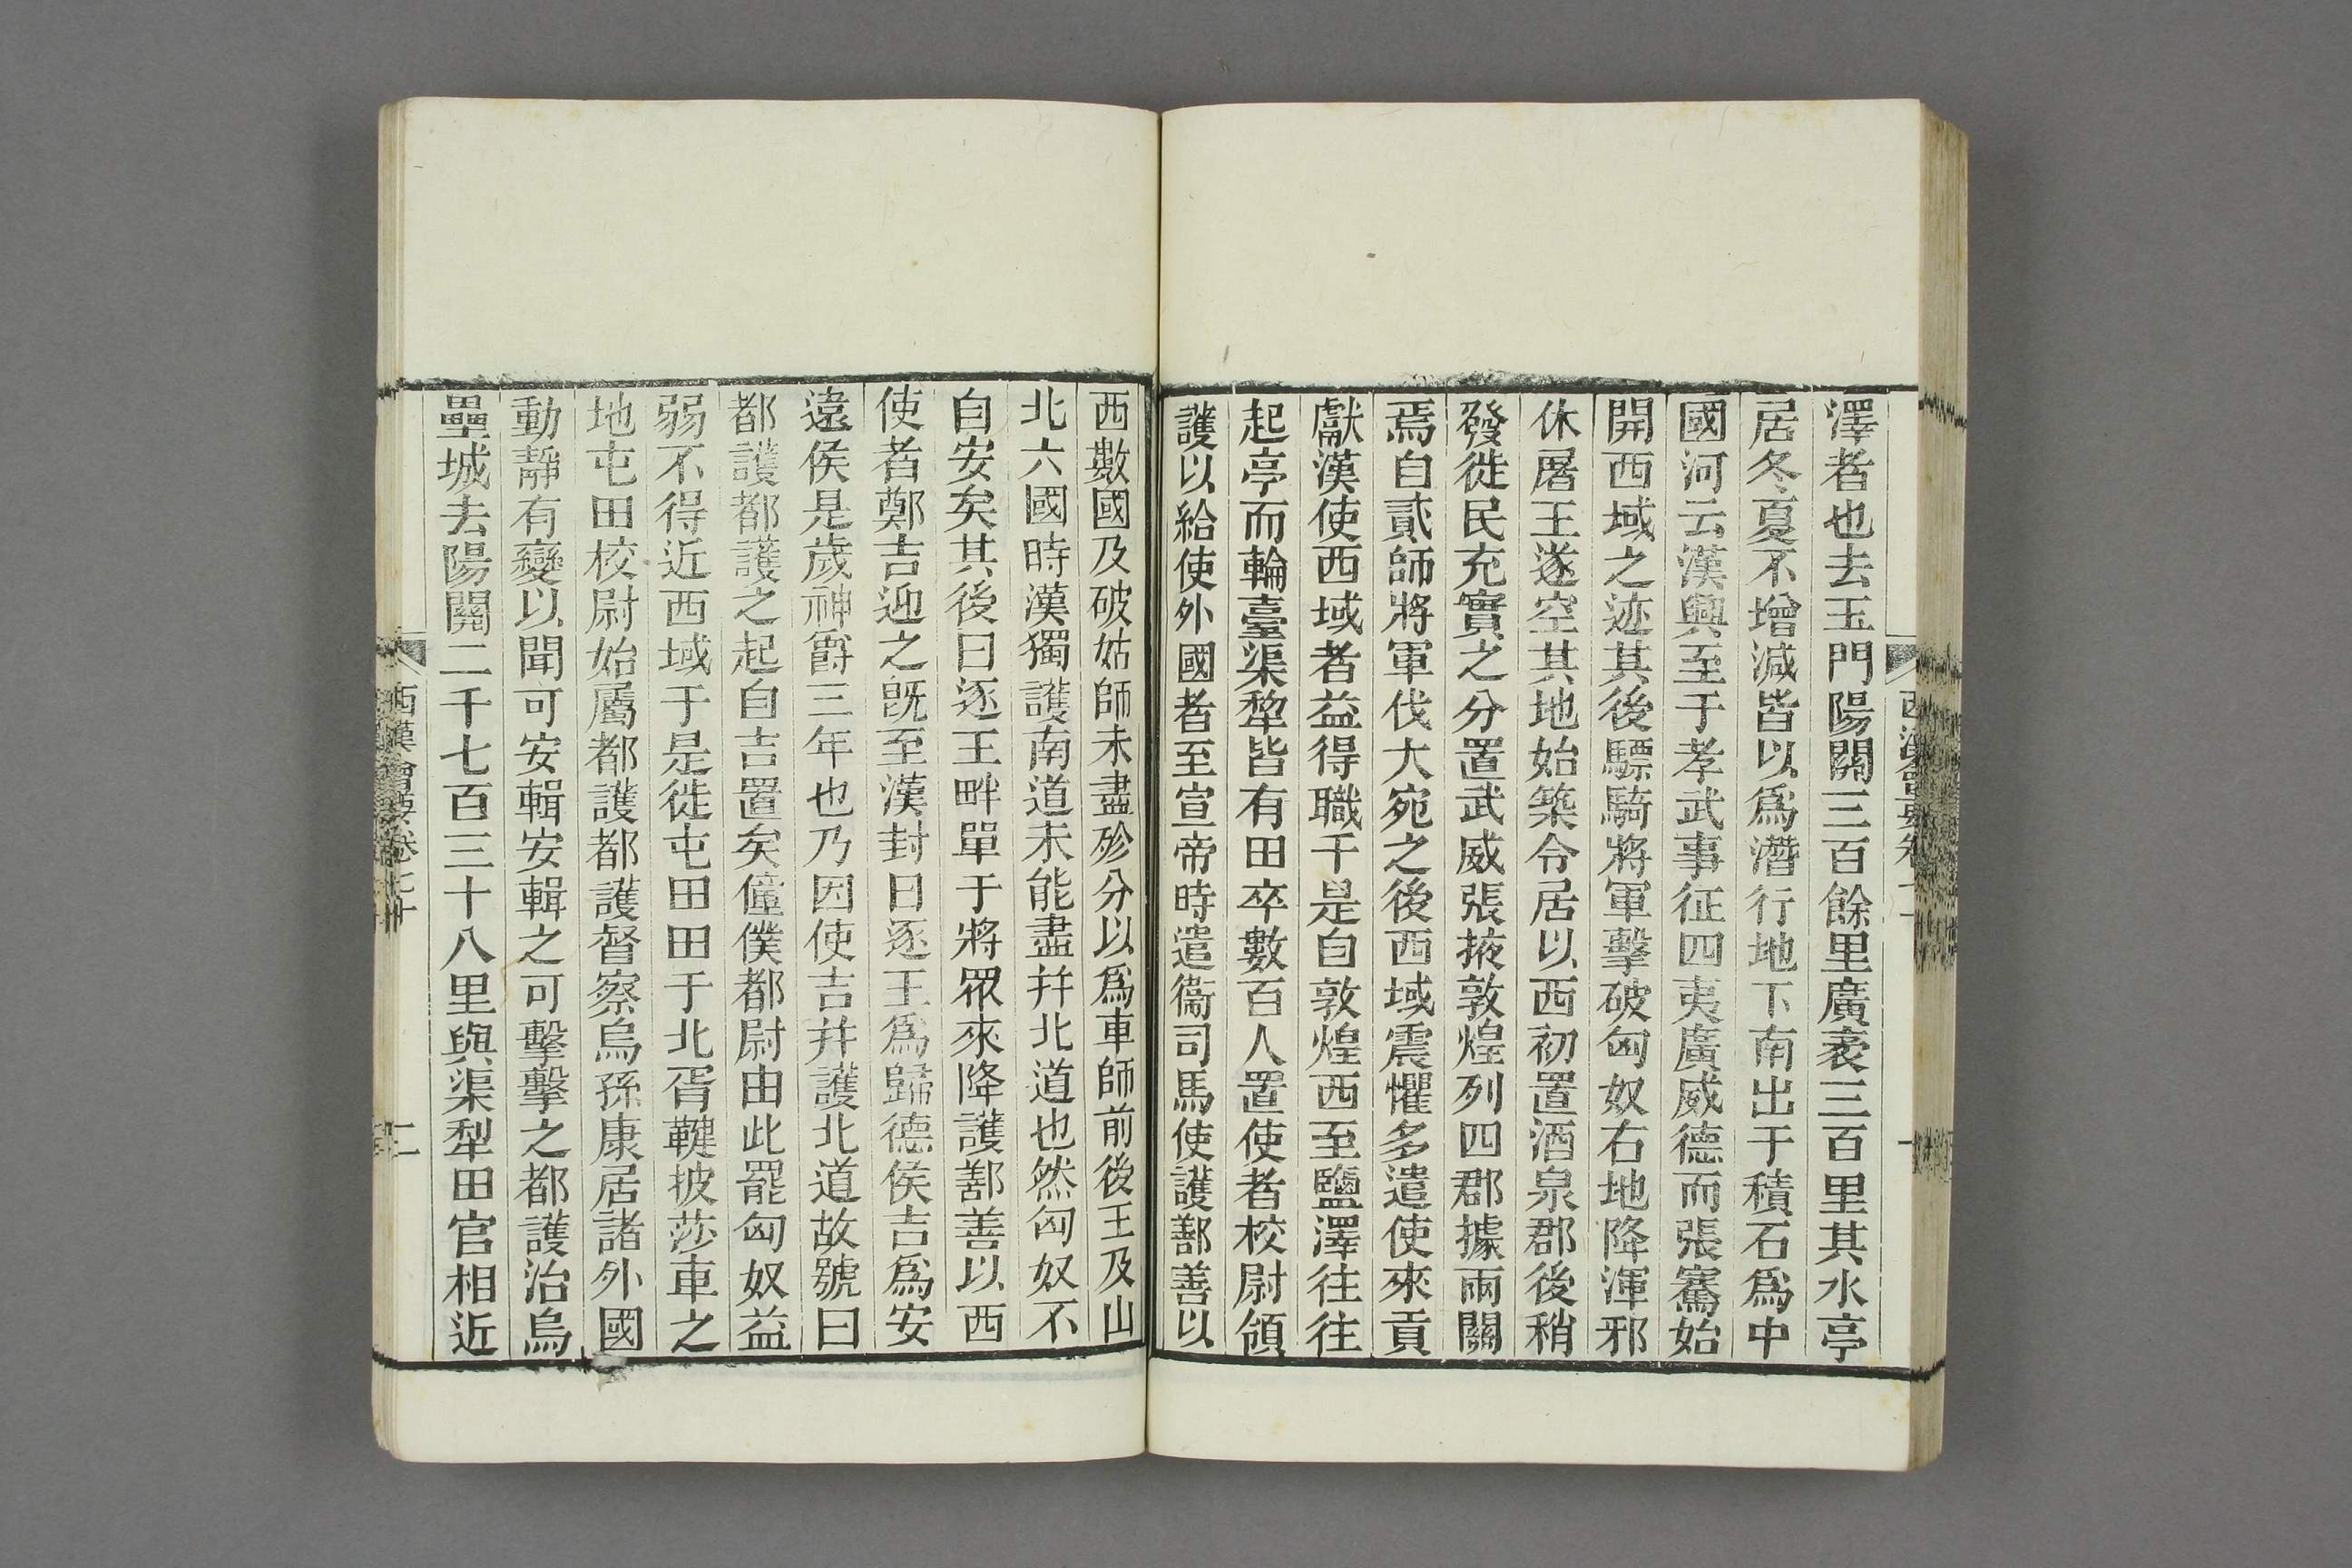 澤者也去玉門陽關三百餘里廣袤三百里其水亭
居冬夏不增減皆以爲潛行地下南出于積石爲中
國河云漢興至于孝武事征四夷廣威德而張騫始
開西域之迹其後驃騎將軍擊破匈奴右地降渾邪
休屠王遂空其地始築令居以西初置酒泉郡後稍
發徙民充實之分置武威張掖敦煌列四郡據兩關
焉自貳師將軍伐大宛之後西域震懼多遣使來貢
獻漢使西域者益得職于是自敦煌西至鹽澤往往
起亭而輪臺渠犂皆有田卒數百人置使者校尉領
護以給使外國者至宣帝時遣衞司馬使護鄯善以
西數國及破姑師未盡殄分以爲車師前後王及山
北六國時漢獨護南道未能盡幷北道也然匈奴不
自安矣其後日逐王畔單于將眾來降護鄯善以西
使者鄭吉迎之旣至漢封日逐王爲歸德侯吉爲安
遠侯是歲神爵三年也乃因使吉幷護北道故號曰
都護都護之起自吉置矣僮僕都尉由此罷匈奴益
弱不得近西域于是徙屯田田于北胥鞬披莎車之
地屯田校尉始屬都護都護督察烏孫康居諸外國
動靜有變以聞可安輯安輯之可擊擊之都護治烏
壘城去陽關二千七百三十八里與渠犁田官相近
西漢會要卷七十
二